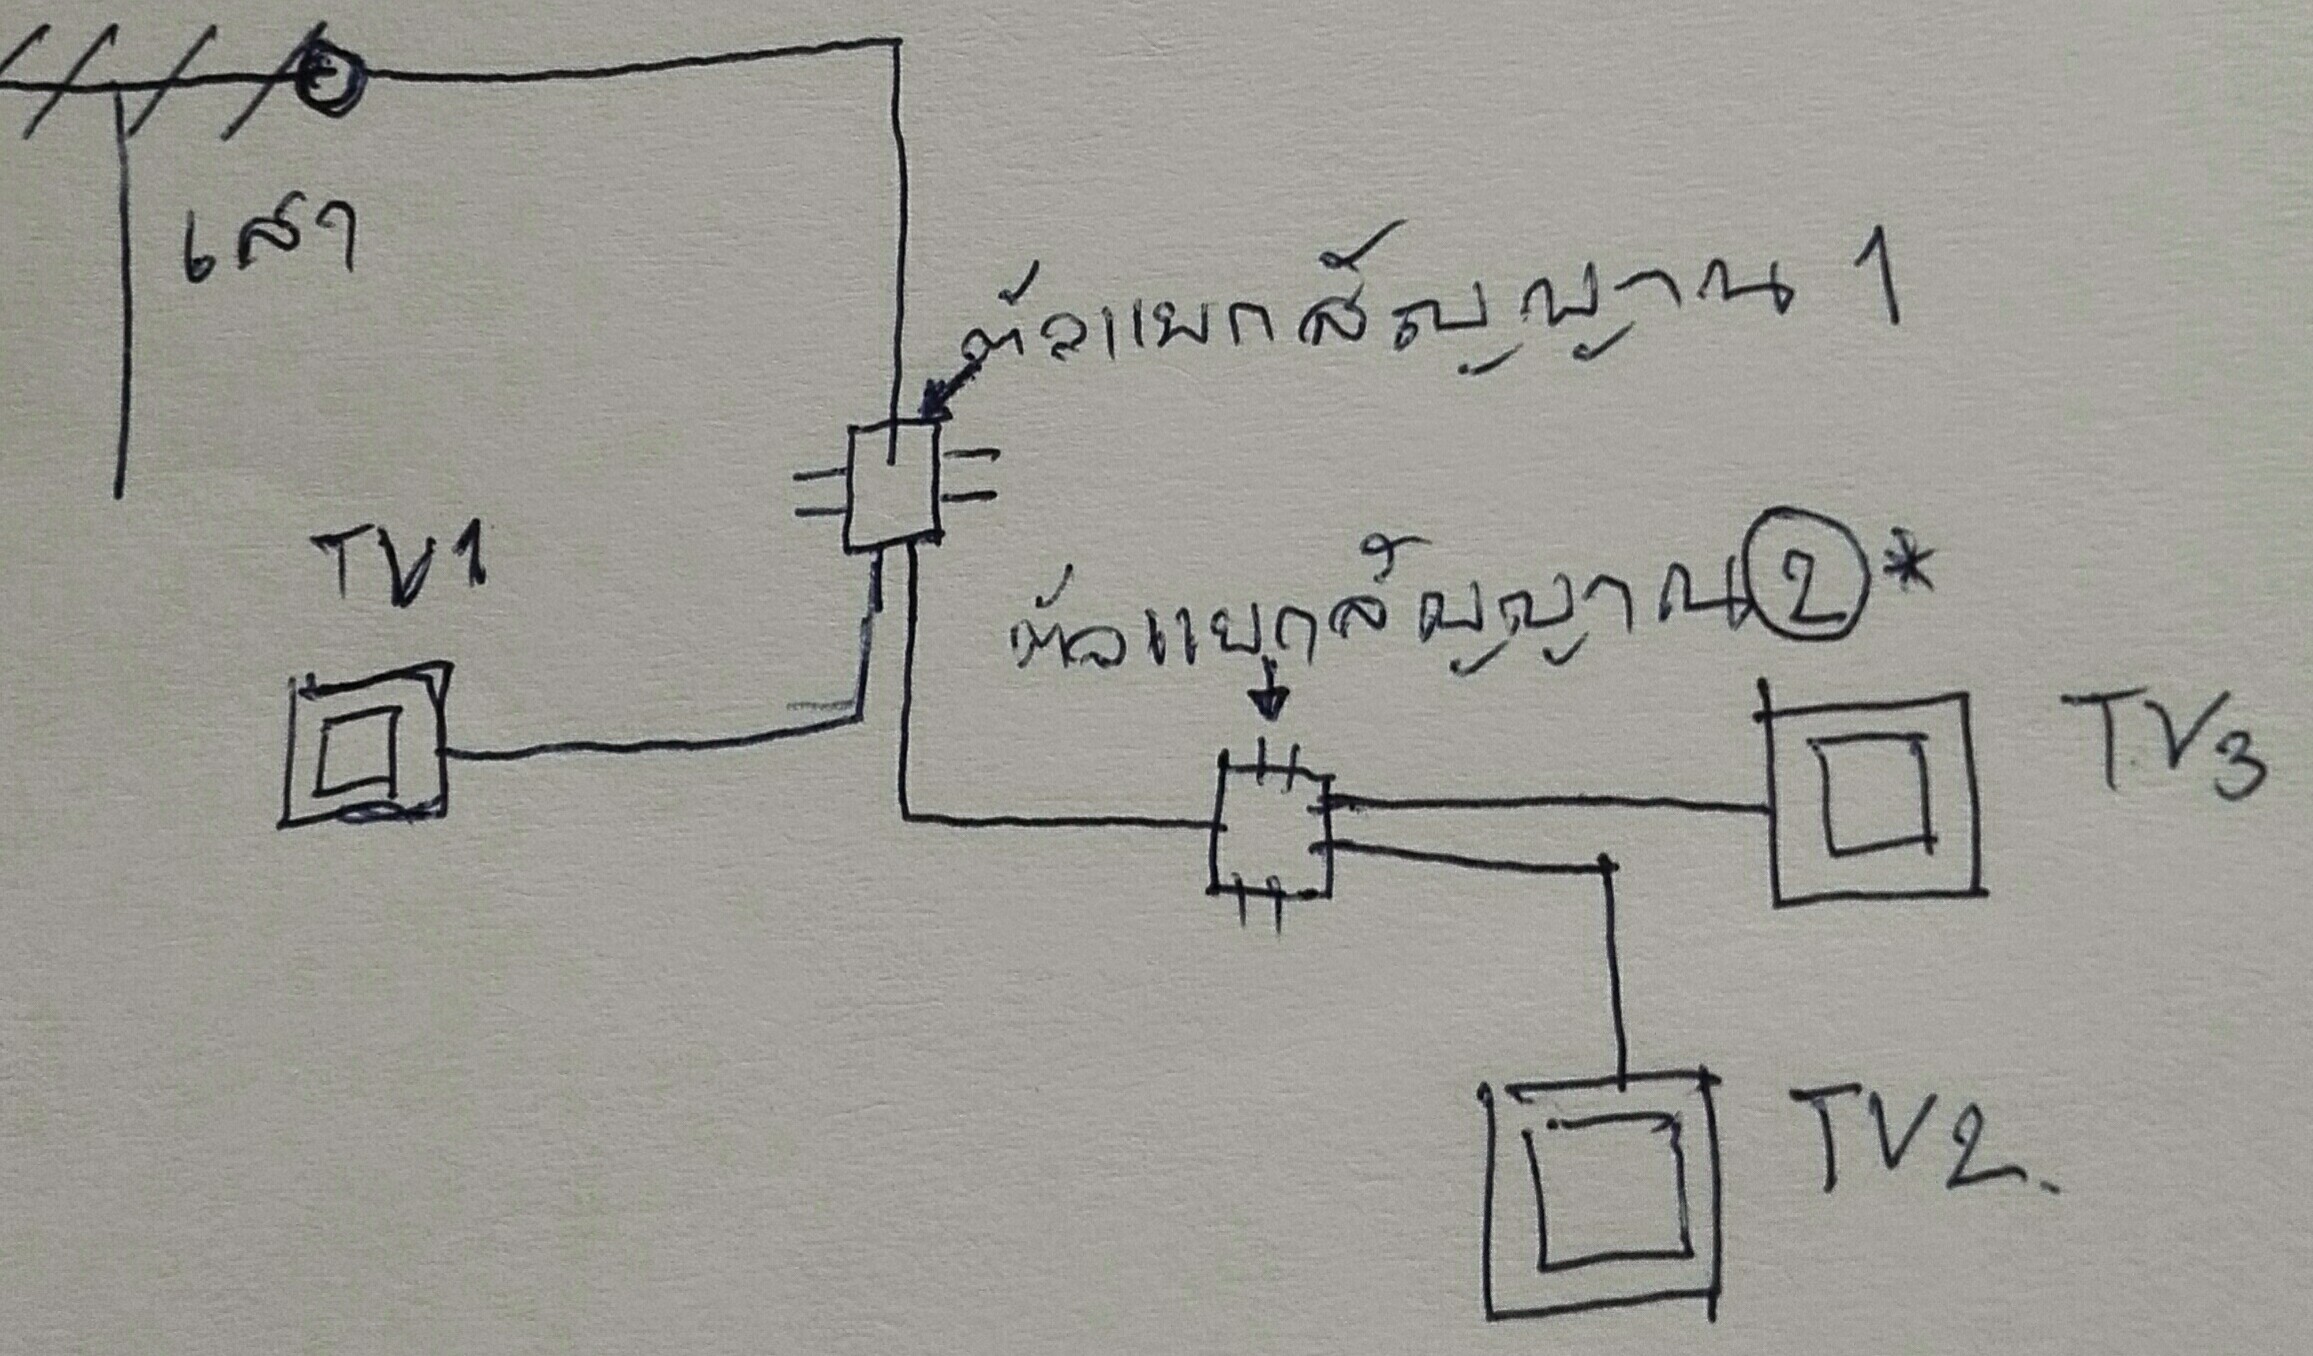 เสา
ตัวแยกสัญญาน 1
TV1
ตัวแยกสัญญาน 2 *
TV3
TV2.